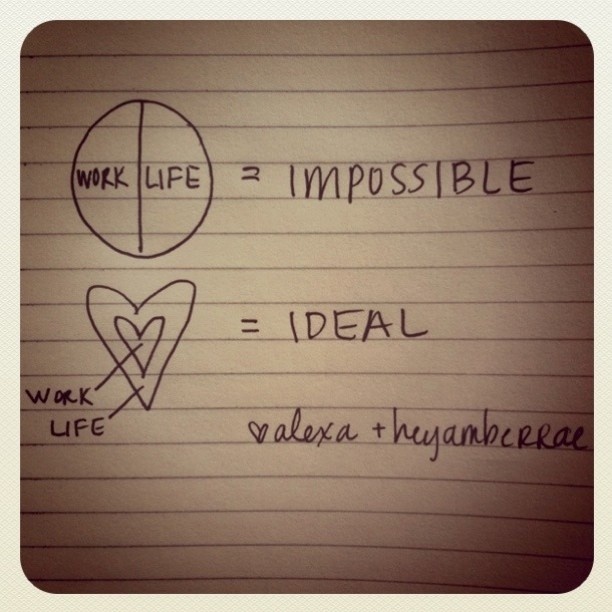 WORK LIFE = IMPOSSIBLE
= IDEAL
WORK
LIFE
♡alexa + heyamberrae